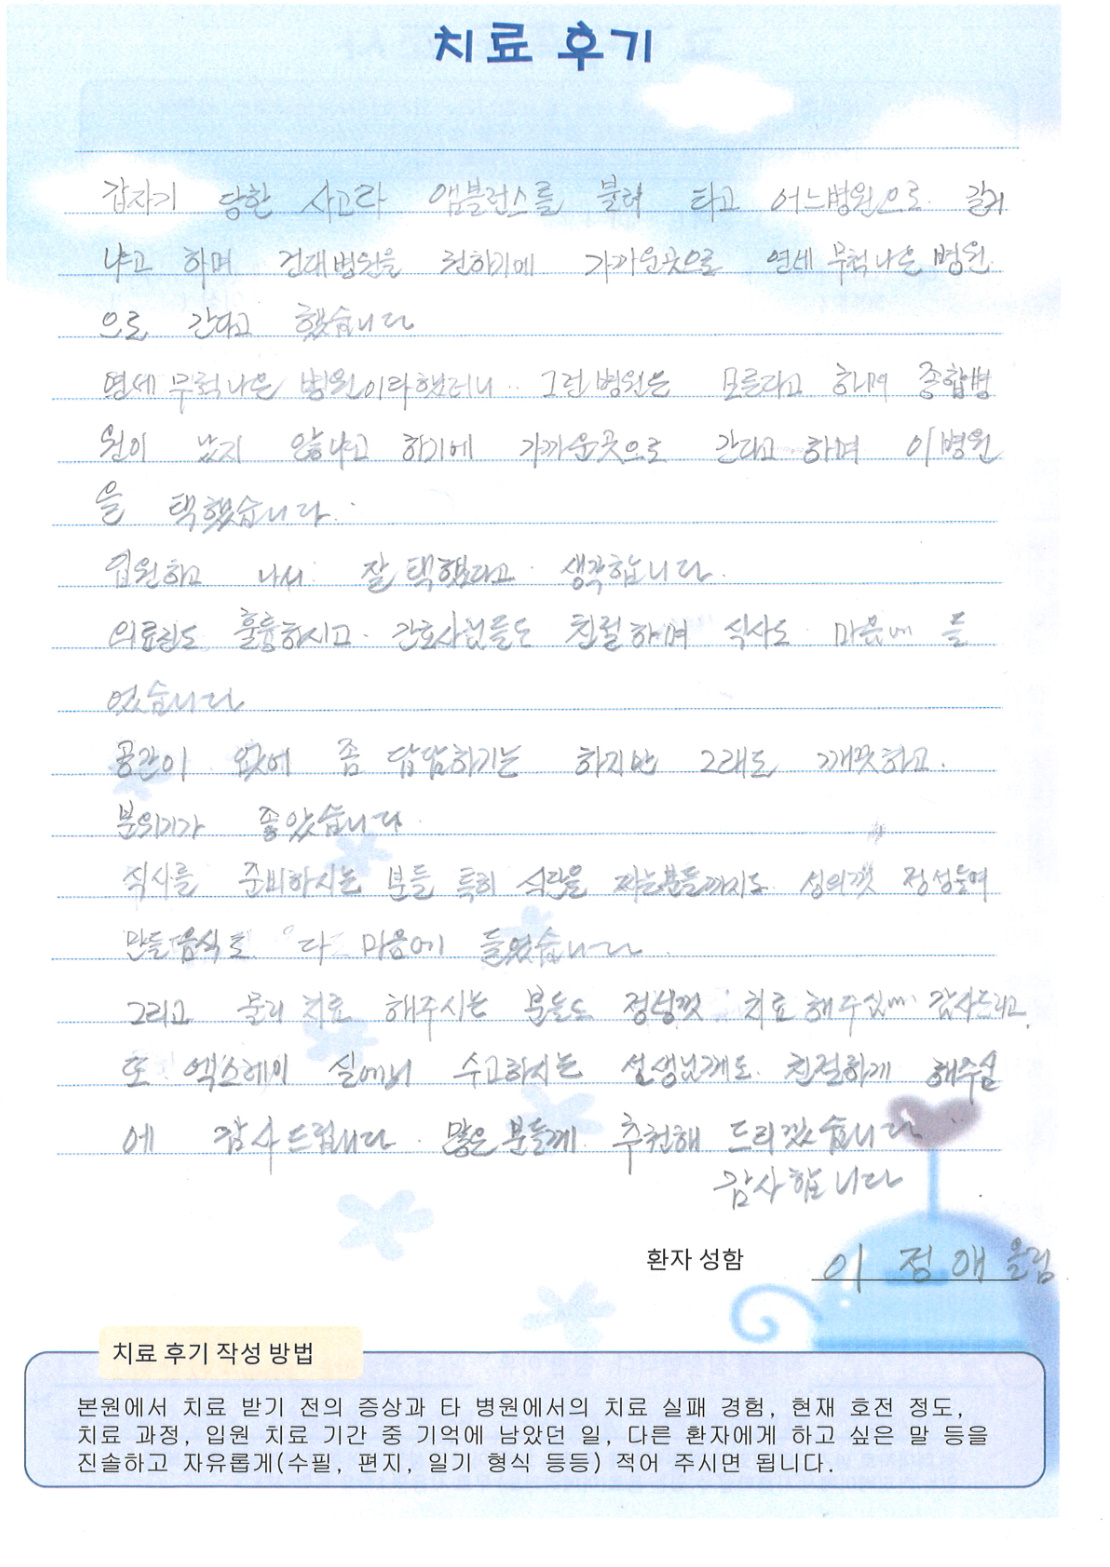 치료 후기
갑자기 당한 사고라 앰블런스를 불러 타고 어느병원으로 갈거
냐고 하며 건대병원을 원하기에 가까운곳으로 연세 무척나은 병원
으로 간다고 했습니다
연세 무척나은 병원이라했더니 그런병원은 모른다고 하며 종합병
원이 낫지 않냐고 하기에 가까운곳으로 간다고 하며 이병원
을 택했습니다.
입원하고 나서 잘 택했다고 생각합니다.
의료진도 훌륭하시고 간호사님들도 친절하며 식사도 마음에 들
었습니다
공간이 좀 답답하기는 하지만 그래도 깨끗하고.
분위기가 좋았습니다
식사를 준비하시는 분들 특히 식단을 짜는분들까지도 성의껏 정성들여
만들 음식로 다 마음에 들었습니다.
그리고 물리 치료 해주시는 분들도 정성껏 치료해주심에 감사드리고,
또 엑스레이 실에서 수고하시는 선생님께도 친절하게 해주심
에 감사드립니다. 많은분들께 추천해 드리겠습니다
감사합니다
환자 성함 이 정 애 올림
치료 후기 작성 방법
본원에서 치료 받기 전의 증상과 타 병원에서의 치료 실패 경험, 현재 호전 정도,
치료 과정, 입원 치료 기간 중 기억에 남았던 일, 다른 환자에게 하고 싶은 말 등을
진솔하고 자유롭게(수필, 편지, 일기 형식 등등) 적어 주시면 됩니다.